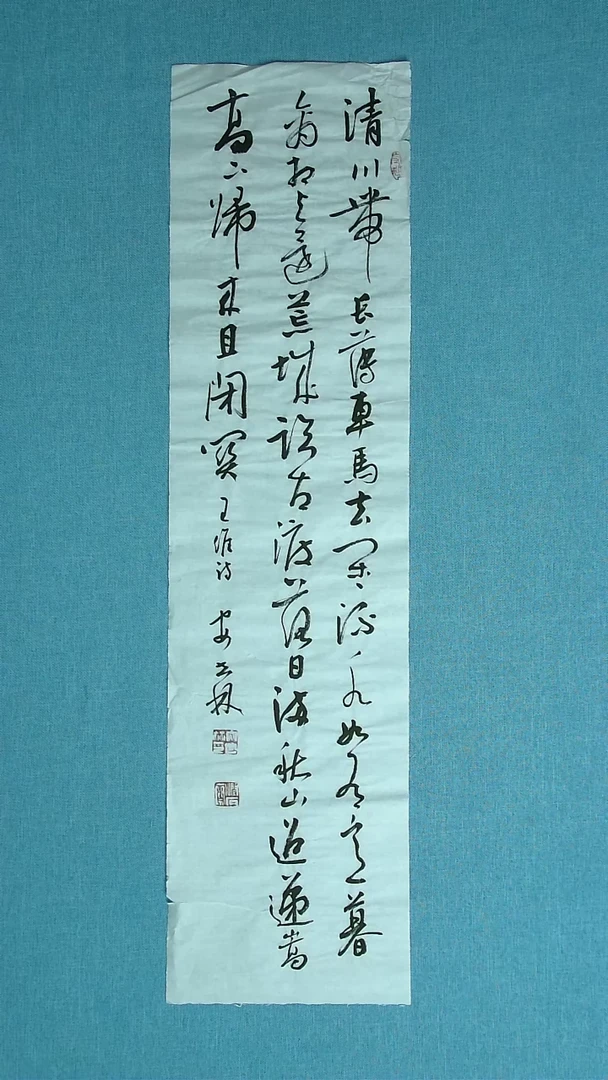 清川帶長薄車馬去閑〻流水如有意暮
禽相与還荒城臨古渡落日滿秋山迢遞嵩
高下歸来且閉関王維詩